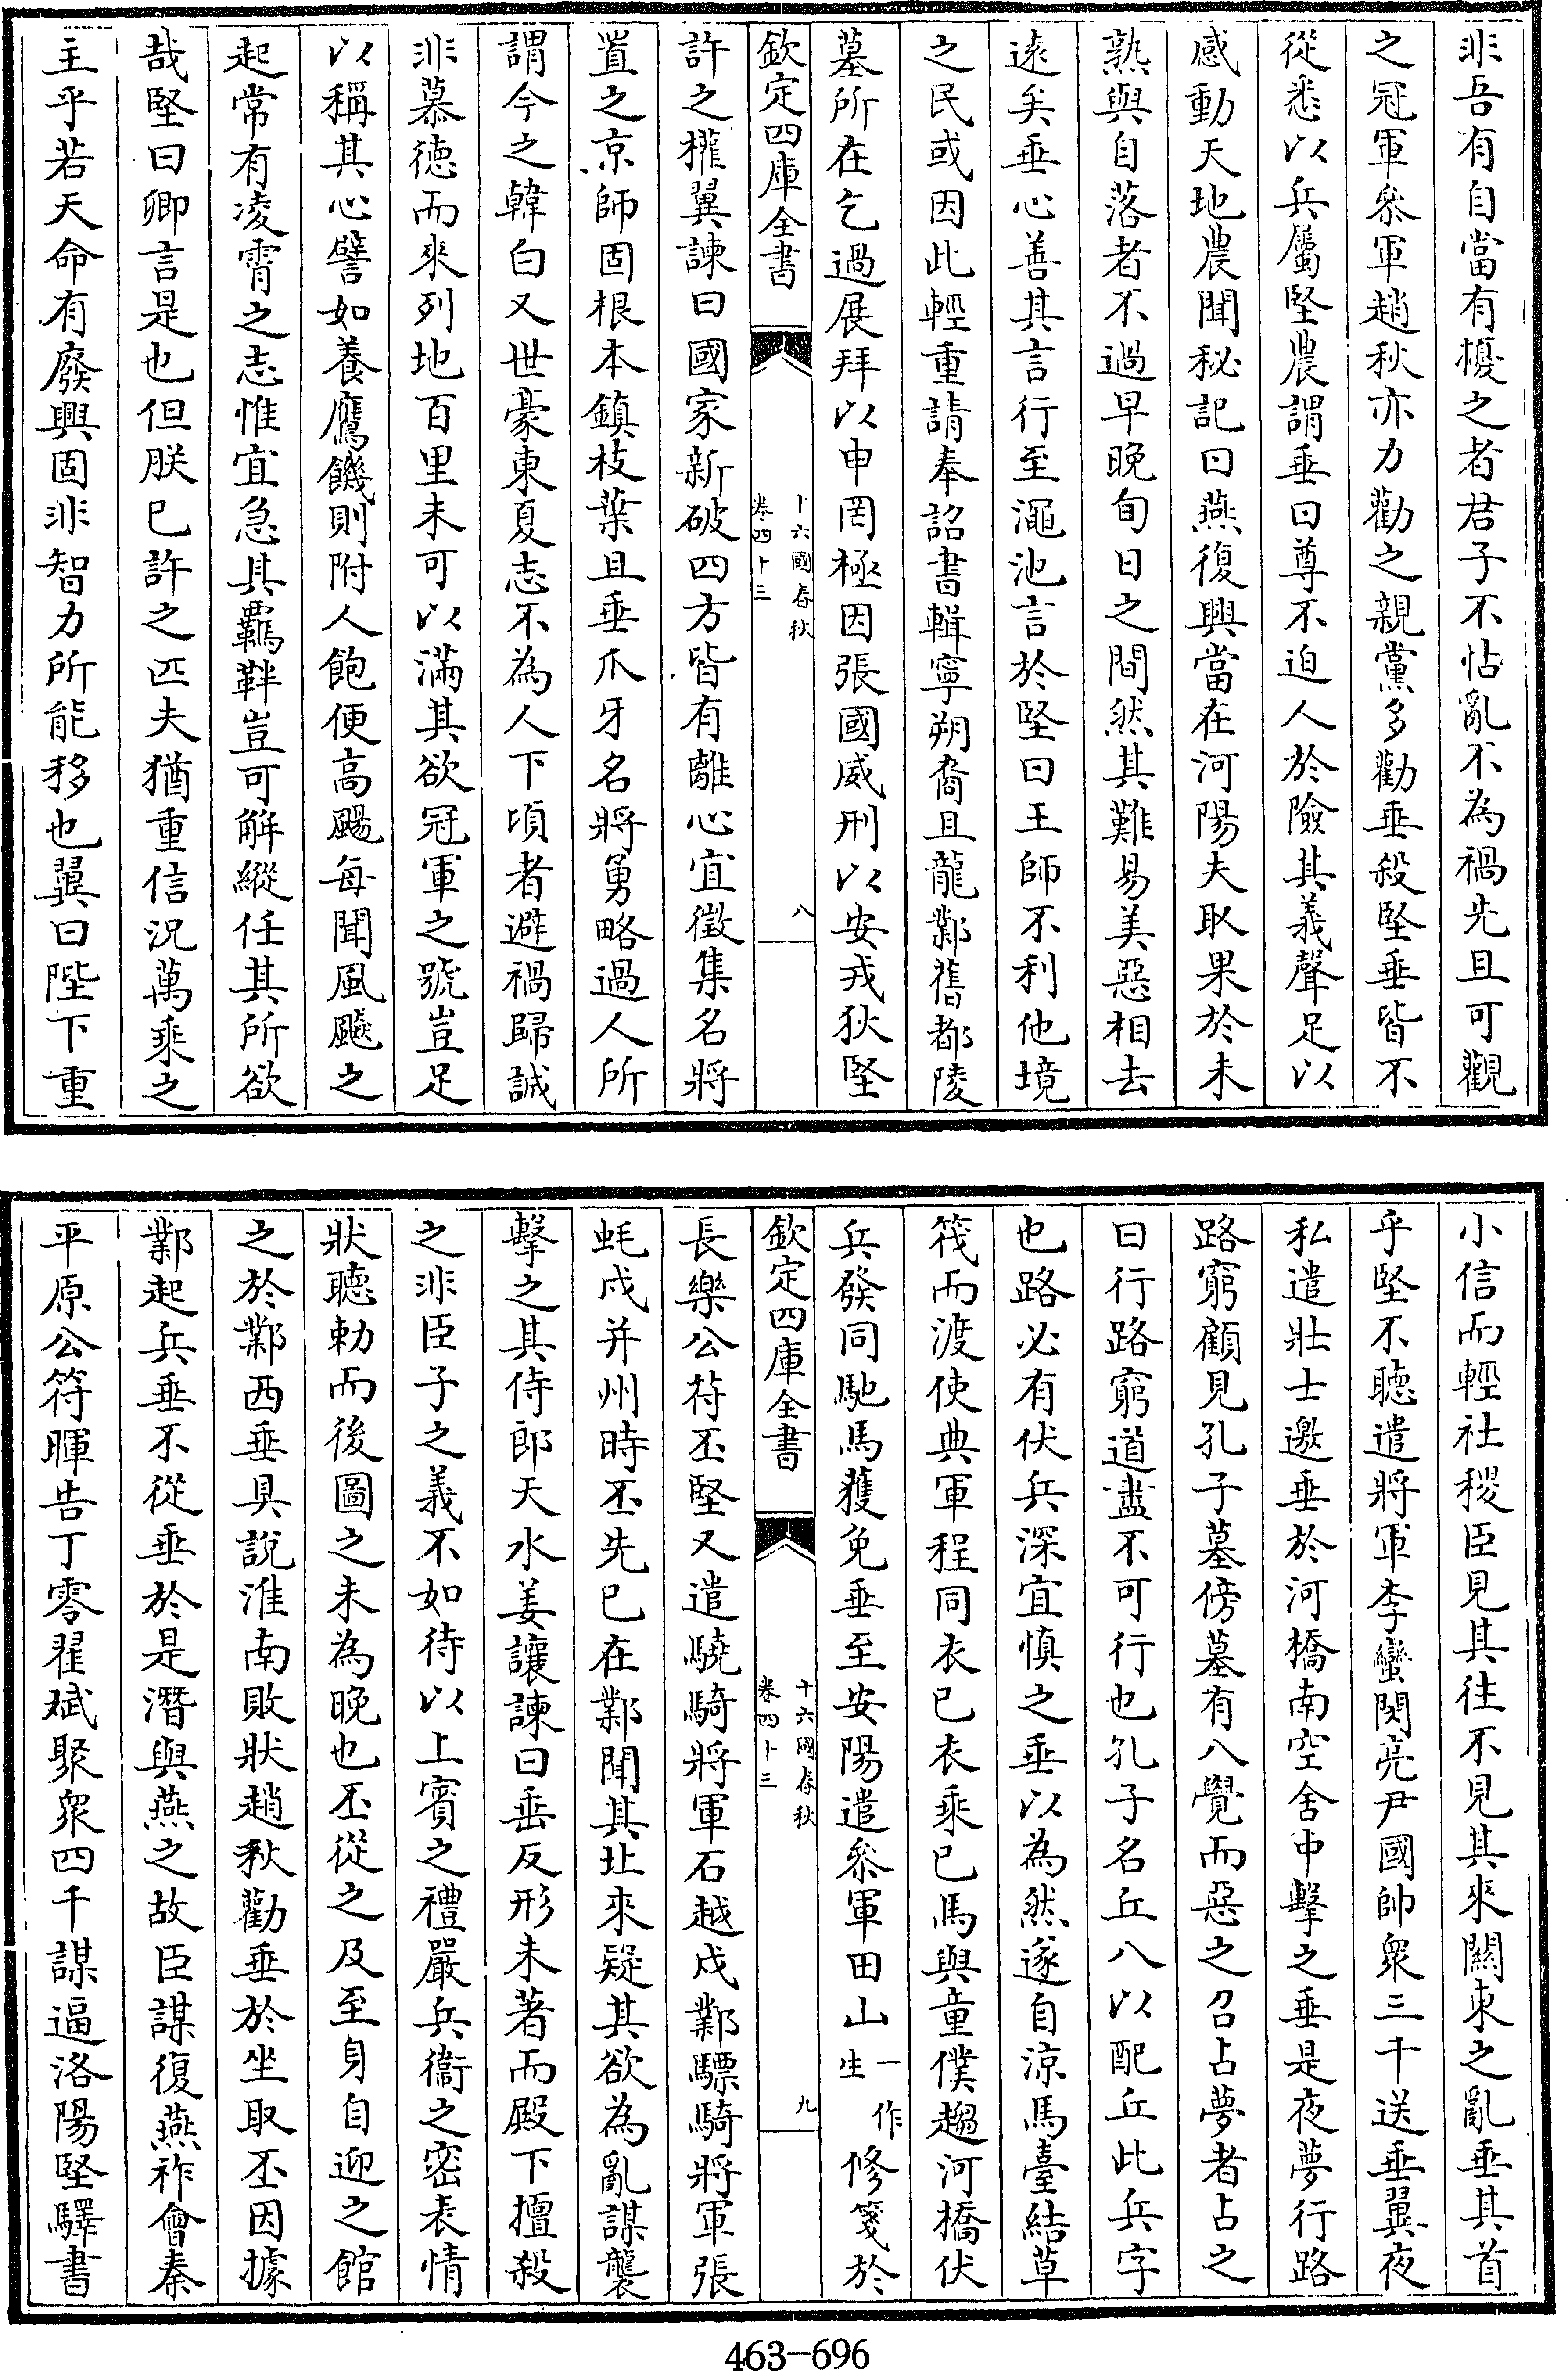 非吾有自當有擾之者君子不怙亂不為禍先且可觀
之冠軍叅軍趙秋亦力勸之親黨多勸垂殺堅垂皆不
從悉以兵屬堅農謂垂曰尊不迫人於險其義聲足以
感動天地農聞秘記曰燕復興當在河陽夫取果於未
熟與自落者不過早晚旬日之間然其難易美惡相去
遠矣垂心善其言行至澠池言於堅曰王師不利他境
之民或因此輕重請奉詔書輯寧朔裔且龍鄴舊都陵
墓所在乞過展拜以申罔極因張國威刑以安戎狄堅
欽定四庫全書
十六國春秋
卷四十三
八
許之權翼諫曰國家新破四方皆有離心宜徵集名將
置之京師固根本鎮枝葉且垂爪牙名將勇略過人所
謂今之韓白又世豪東夏志不為人下頃者避禍歸誠
非慕德而來列地百里未可以滿其欲冠軍之號豈足
以稱其心譬如養鷹饑則附人飽便高颺每聞風飇之
起常有凌霄之志惟宜急其羈靽豈可解縱任其所欲
哉堅曰卿言是也但朕已許之匹夫猶重信况萬乘之
主乎若天命有廢興固非智力所能移也翼曰陛下重
小信而輕社稷臣見其往不見其來關東之亂垂其首
乎堅不聽遣將軍李蠻閔亮尹國帥衆三千送垂翼夜
私遣壯士邀垂於河橋南空舍中擊之垂是夜夢行路
路窮顧見孔子墓傍墓有八覺而惡之召占夢者占之
曰行路窮道盡不可行也孔子名丘八以配丘此兵字
也路必有伏兵深宜慎之垂以為然遂自涼馬臺結草
筏而渡使典軍程同衣已衣乘已馬與童僕趨河橋伏
兵發同馳馬獲免垂至安陽遣叅軍田山一作生修箋於
欽定四庫全書
十六國春秋
卷四十三
九
長樂公苻丕堅又遣驍騎將軍石越戍鄴驃騎將軍張
蚝戍并州時丕先已在鄴聞其北來疑其欲為亂謀襲
擊之其侍郎天水姜讓諫曰垂反形未著而殿下擅殺
之非臣子之義不如待以上賓之禮嚴兵衞之密表情
狀聽勅而後圖之未為晚也丕從之及至身自迎之館
之於鄴西垂具說淮南敗狀趙秋勸垂於坐取丕因據
鄴起兵垂不從垂於是潛與燕之故臣謀復燕祚會秦
平原公苻暉告丁零翟斌聚衆四千謀逼洛陽堅驛書
463-696